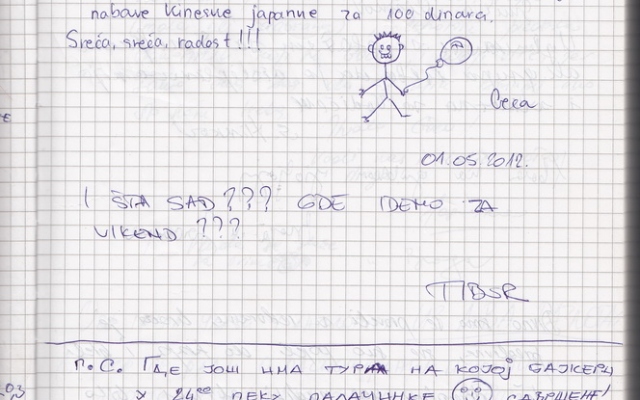 nabave kineske japanke za 100 dinara.
Sreća, sreća, radost!!!
Ceca
01.05.2012.
I ŠTA SAD??? GDE IDEMO ZA
VIKEND ???
TIBSR
П.С. ГДЕ ЈОШ ИМА ТУРА НА КОЈОЈ БАЈКЕРИ
У 24⁰⁰ ПЕКУ ПАЛАЧИНКЕ САВРШЕНИ